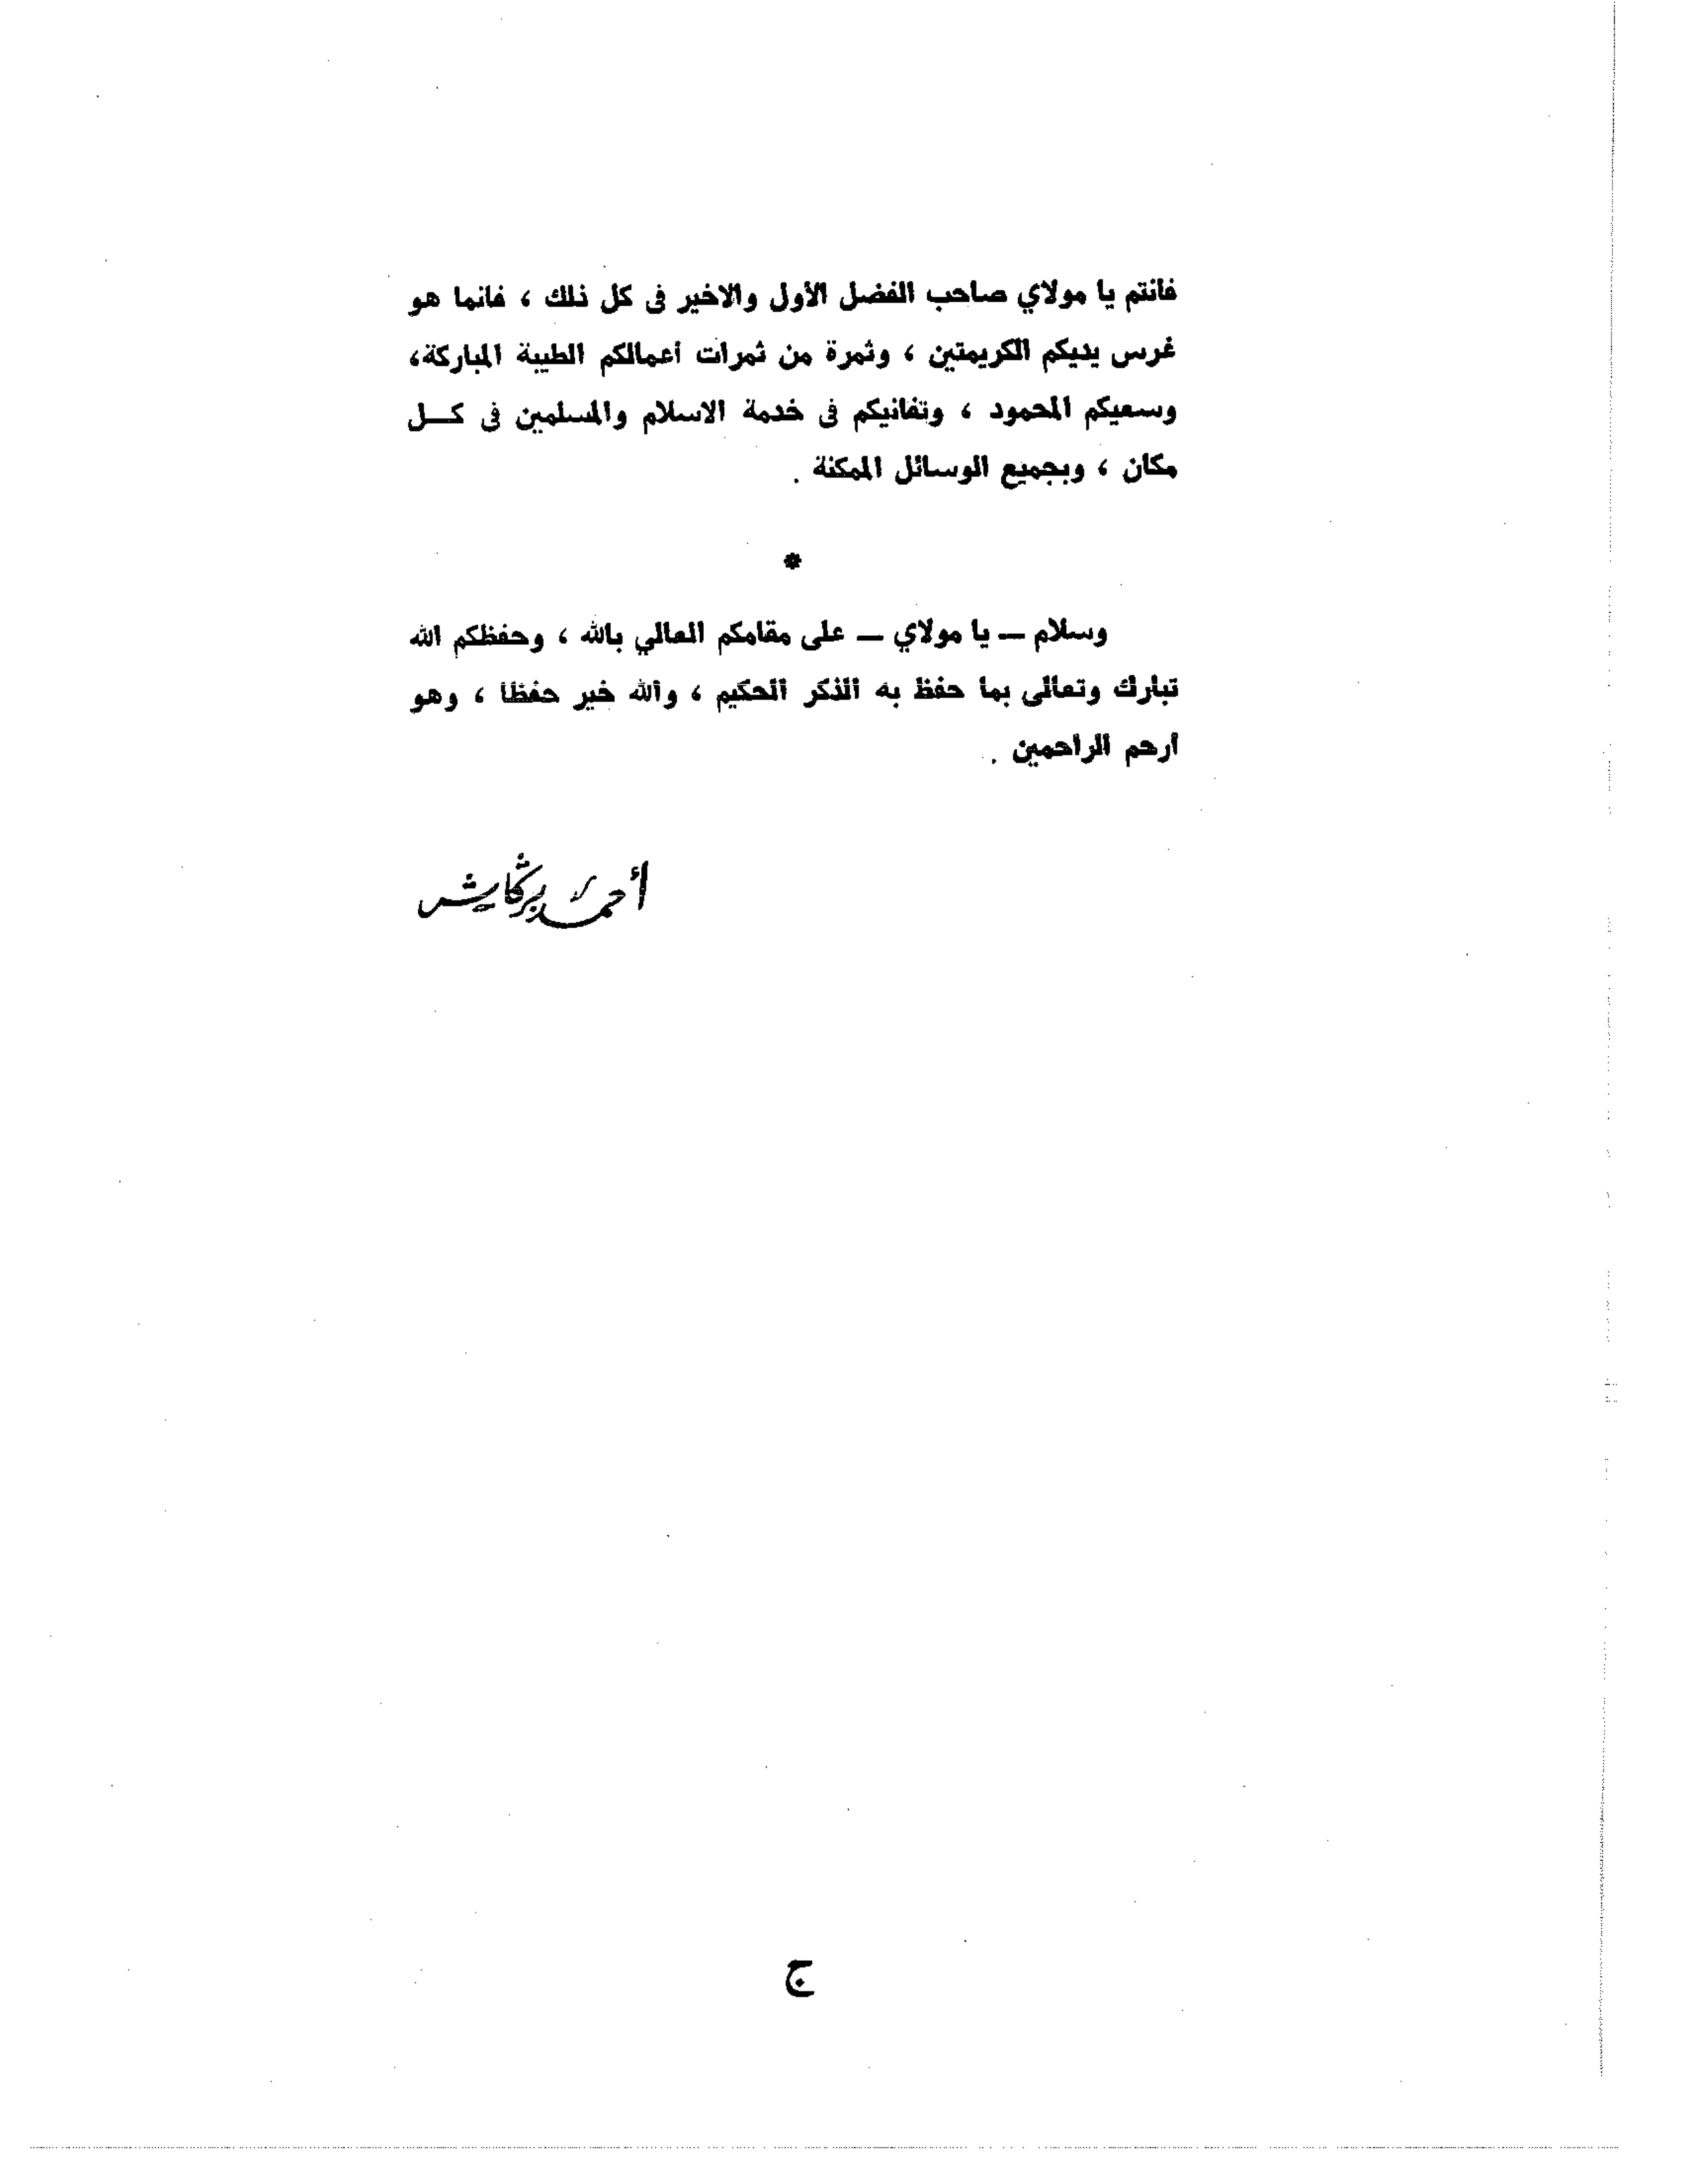 فانتم يا مولاي صاحب الفضل الأول والاخير فى كل ذلك ، فانما هو
غرس يديكم الكريمتين ، وثمرة من ثمرات أعمالكم الطيبة المباركة،
وسعيكم المحمود ، وتفانيكم فى خدمة الاسلام والمسلمين فى كـــل
مكان ، وبجميع الوسائل الممكنة .
*
وسلام — يا مولاي — على مقامكم العالي بالله ، وحفظكم الله
تبارك وتعالى بما حفظ به الذكر الحكيم ، والله خير حفظا ، وهو
أرحم الراحمين .
أحمد برگاش
ج